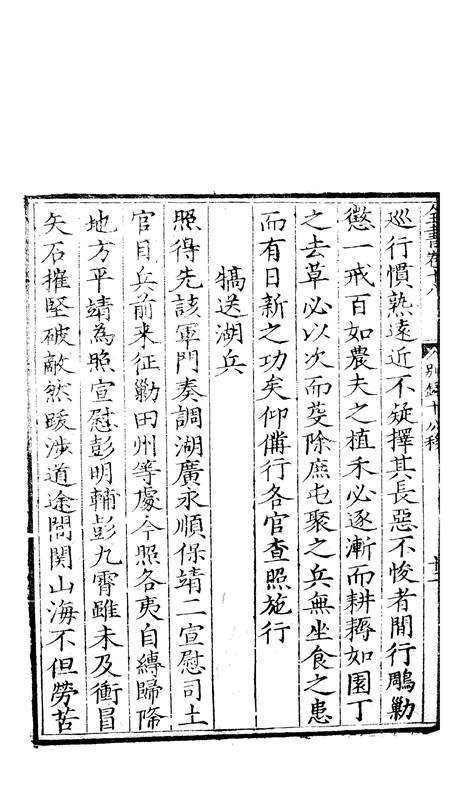 全書卷十八 別錄十公移
巡行慣熟遠近不疑擇其長惡不悛者間行鵰勦
懲一戒百如農夫之植禾必逐漸而耕耨如園丁
之去草必以次而芟除庶屯聚之兵無坐食之患
而有日新之功矣仰備行各官查照施行
犒送湖兵
照得先該軍門奏調湖廣永順保靖二宣慰司土
官目兵前来征勦田州等處今照各夷自縛歸降
地方平靖為照宣慰彭明輔彭九霄雖未及衝冒
矢石摧堅破敵然跋涉道途間関山海不但勞苦